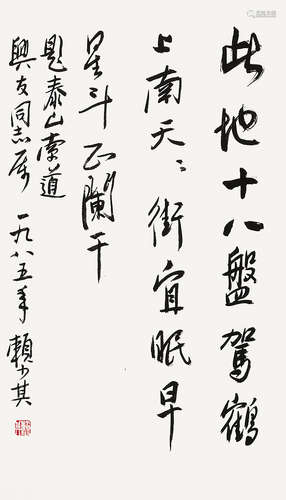 此地十八盤駕鶴
上南天〻街宜眠早
星斗正闌干
題泰山索道
興友同志屬 一九八五年 賴少其